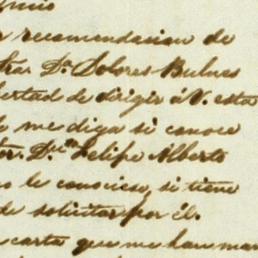 recomendacion de
tra. Da. Dolores Bulnes
bertad de dirigir á V. esta
me diga si conoce
tor. Dn. Felipe Alberto
le conociese, si tiene
de solicitar por él.
carta que me han man